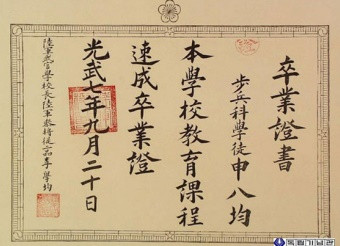 卒業證書
步兵科學徒 申八均
本學校敎育課程
速成卒業證
光武七年九月二十日
陸軍武官學校長陸軍參將從二品李學均
독립기념관